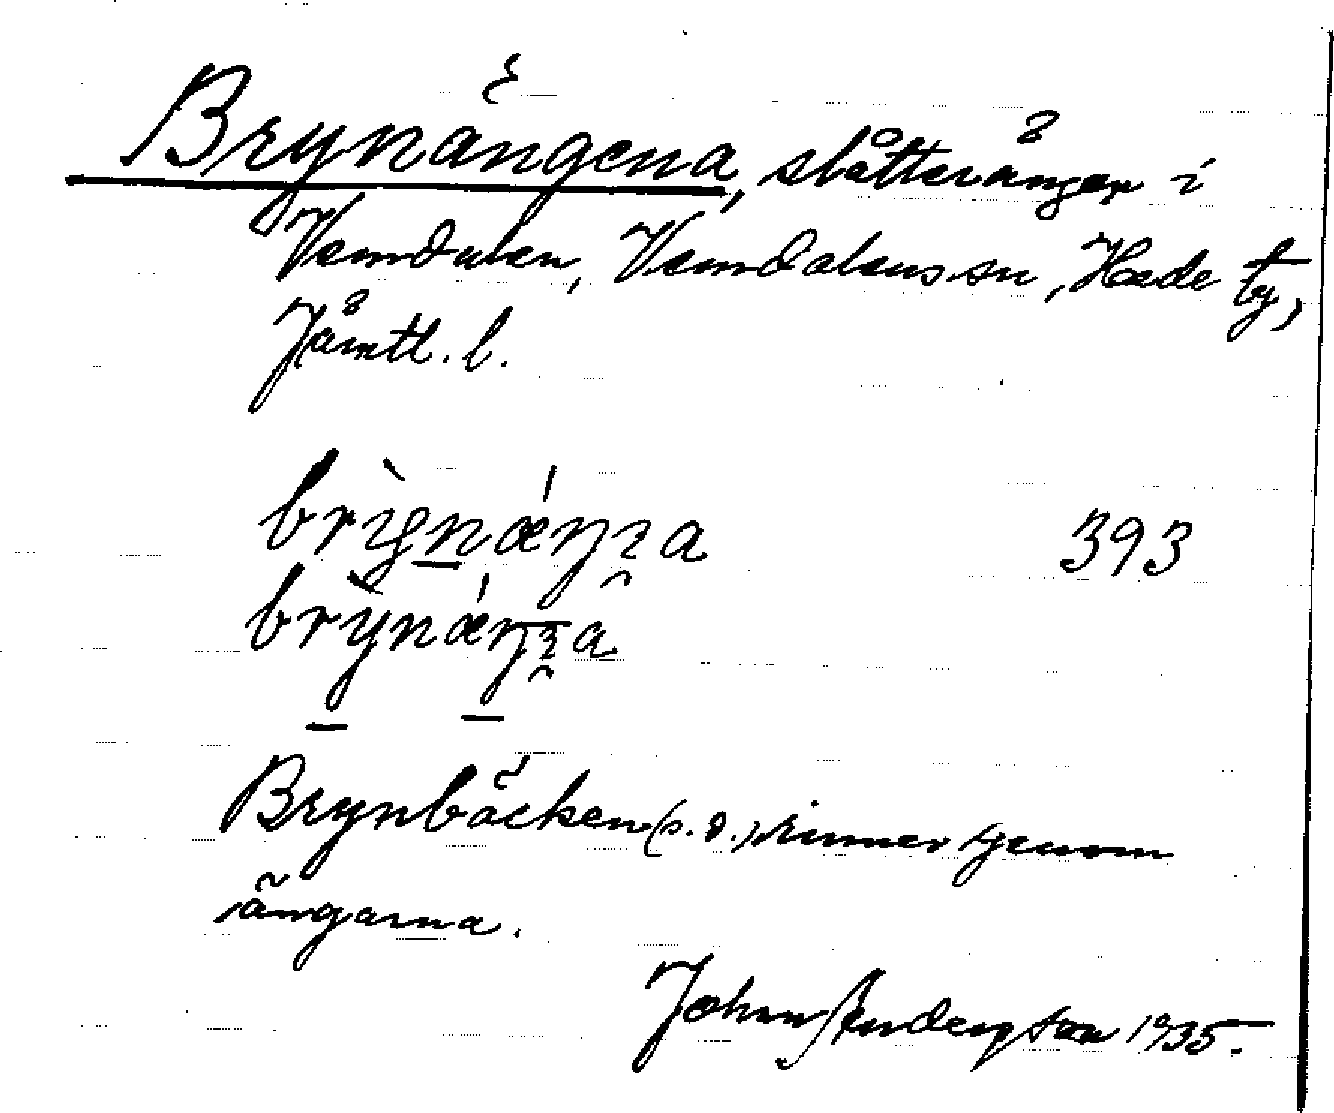 Brynängena, slåtterängar i
Vemdalen, Vemdalens sn, Hede tg,
Jämtl. l.
brìynǽŋɿa 393
brỳnǽŋɿa
Brynbäcken (s. d.) rinner genom
ängarna.
Johan Anderson 1935.